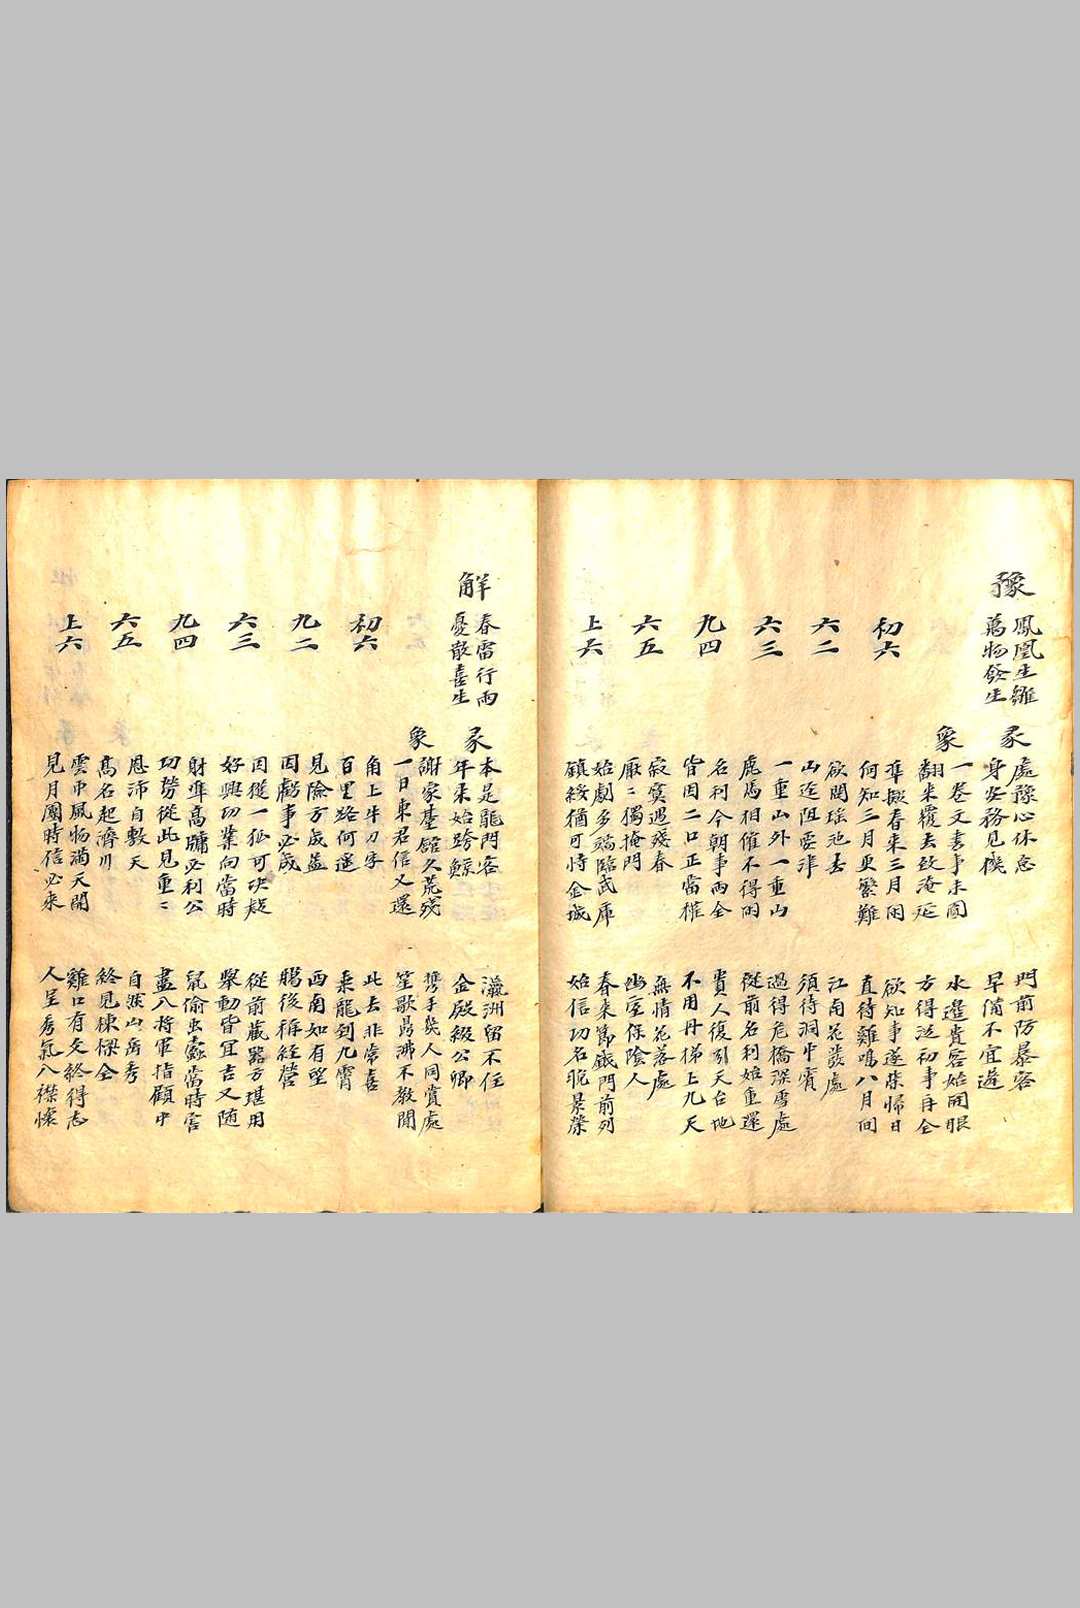 豫
鳳凰生雛
萬物發生
彖
處豫心休怠 門前防暴客
身安務見機 早備不宜遲
象
一卷文書事未圓 水邊貴客始開眼
翻來覆去致淹延 方得返初事再全
初六
準擬春來三月闲 欲知事遂榮歸日
何知三月更繁難 直待雞鳴八月间
六二
欲問瑶池去 江南花發處
山迄阻要津 須待洞中賓
六三
一重山外一重山 過得危橋深雪處
鹿馬相催不得闲 從前名利始重還
九四
名利今朝事两全 貴人復引天台地
皆因二口正當權 不用丹梯上九天
六五
寂寞過殘春 無情花落處
厭〻獨掩門 幽室保陰人
上六
始劇多端臨武庫 春來篤鉞門前列
鎮綏猶可恃金城 始信功名晚景榮
解
春雷行雨
憂散喜生
彖
本是龍門客 瀛洲留不住
年来始跨鯨 金殿綴公卿
象
謝家基舘久荒残 携手美人同賞處
一日東君信又還 笙歌鼎沸不教閒
初六
角上牛刀字 此去非常喜
百里路何遥 乗龍到九霄
九二
見險方成益 西南知有望
因虧事必成 賜後稱經營
六三
因從一狐可决疑 從前蔵器方堪用
好興功業向當時 舉動皆宜吉又随
九四
射準高牗必利公 鼠偷虫蠧當時害
功勞從此見重〻 盡八将軍指顧中
六五
恩沛自敷天 自然山岳秀
髙名起濟川 終見棟樑全
上六
雲中風物滿天開 雞口有文終得志
見月團時信必来 人呈秀氣八襟懷